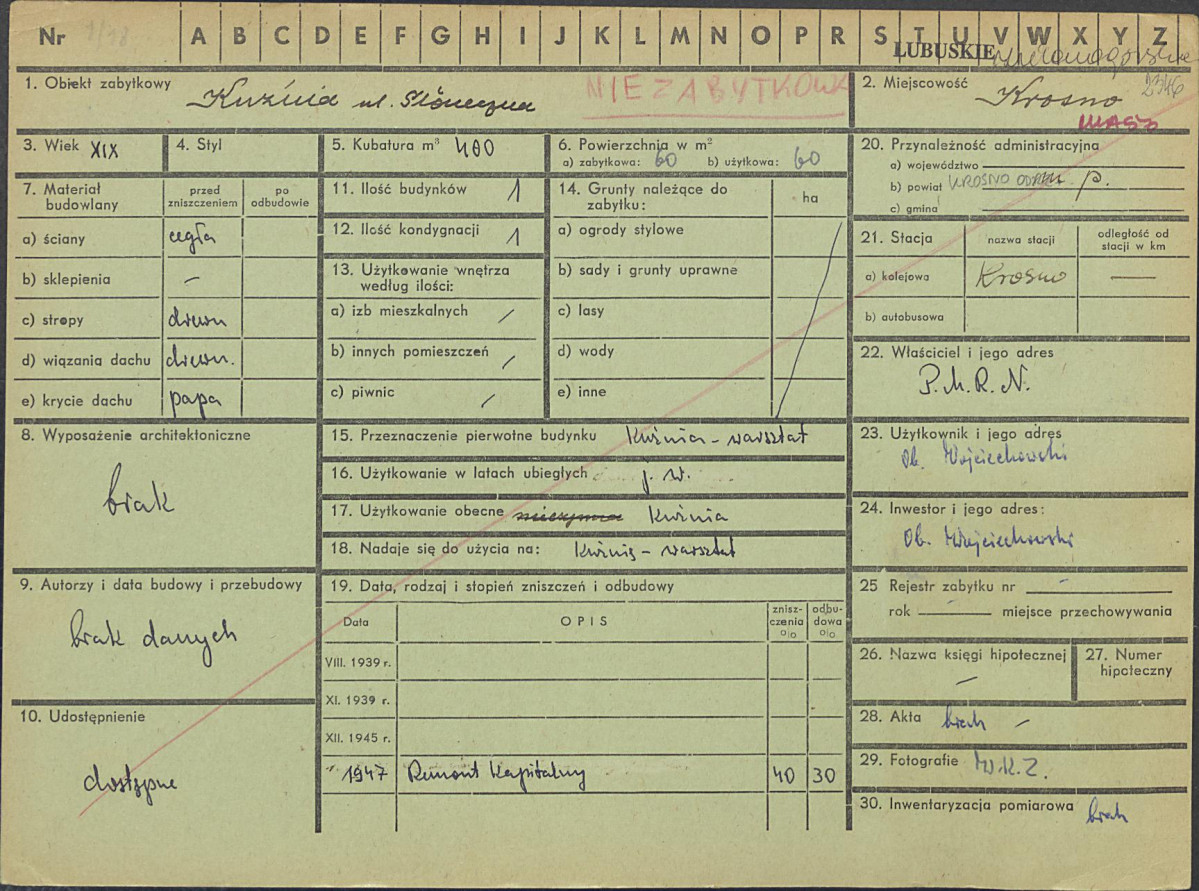 Nr 1/18 A B C D E F G H I J K L M N O P R S T U V W X Y Z
LUBUSKIE zielonogórskie
1. Obiekt zabytkowy Kuźnia ul. Słoneczna
NIEZABYTKOWA
2. Miejscowość Krosno 2346
miasto
3. Wiek XIX
4. Styl
5. Kubatura m³ 400
6. Powierzchnia w m²
a) zabytkowa: 60 b) użytkowa: 60
7. Materiał budowlany
przed zniszczeniem
po odbudowie
a) ściany cegła
b) sklepienia –
c) stropy drewn
d) wiązania dachu drewn.
e) krycie dachu papa
8. Wyposażenie architektoniczne
brak
9. Autorzy i data budowy i przebudowy
brak danych
10. Udostępnienie
dostępne
11. Ilość budynków 1
12. Ilość kondygnacji 1
13. Użytkowanie wnętrza
według ilości:
a) izb mieszkalnych /
b) innych pomieszczeń /
c) piwnic /
14. Grunty należące do
zabytku:
ha
a) ogrody stylowe
b) sady i grunty uprawne
c) lasy
d) wody
e) inne
15. Przeznaczenie pierwotne budynku Kuźnia – warsztat
16. Użytkowanie w latach ubiegłych j. w.
17. Użytkowanie obecne nieczynna Kuźnia
18. Nadaje się do użycia na: Kuźnię – warsztat
19. Data, rodzaj i stopień zniszczeń i odbudowy
Data
OPIS
znisz-
czenia
o|o
odbu-
dowa
o|o
VIII. 1939 r.
XI. 1939 r.
XII. 1945 r.
1947 Remont Kapitalny 40 30
20. Przynależność administracyjna
a) województwo
b) powiat KROSNO ODRZ. p.
c) gmina
21. Stacja
nazwa stacji
odległość od
stacji w km
a) kolejowa Krosno —
b) autobusowa
22. Właściciel i jego adres
P.M.R.N.
23. Użytkownik i jego adres
Ob. Wojciechowski
24. Inwestor i jego adres:
Ob. Wojciechowski
25 Rejestr zabytku nr –
rok – miejsce przechowywania
26. Nazwa księgi hipotecznej
–
27. Numer
hipoteczny
28. Akta brak –
29. Fotografie W.K.Z.
30. Inwentaryzacja pomiarowa brak